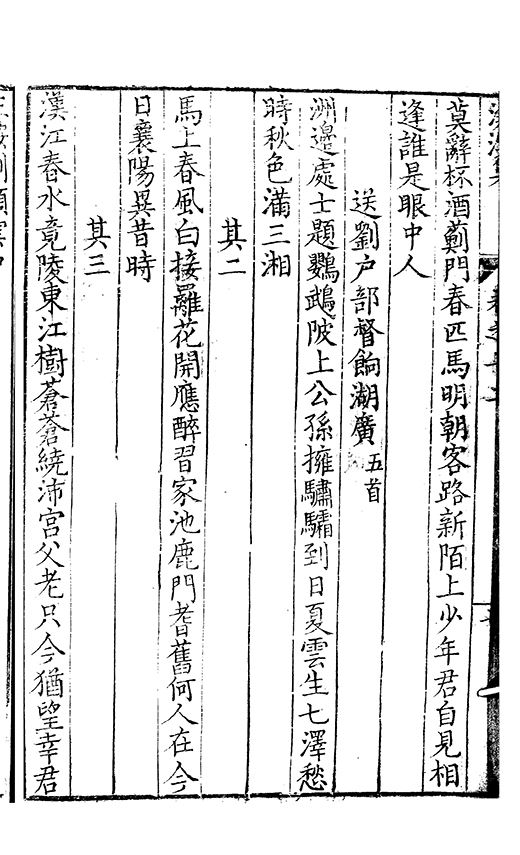 莫辭杯酒薊門春匹馬明朝客路新陌上少年君自見相
逢誰是眼中人
送劉户部督餉湖廣五首
洲邊處士題鸚鵡陂上公孫擁驌驦到日夏雲生七澤愁
時秋色滿三湘
其二
馬上春風白接䍦花開應醉習家池鹿門耆舊何人在今
日襄陽異昔時
其三
漢江春水竟陵東江樹蒼蒼繞沛宫父老只今猶望幸君